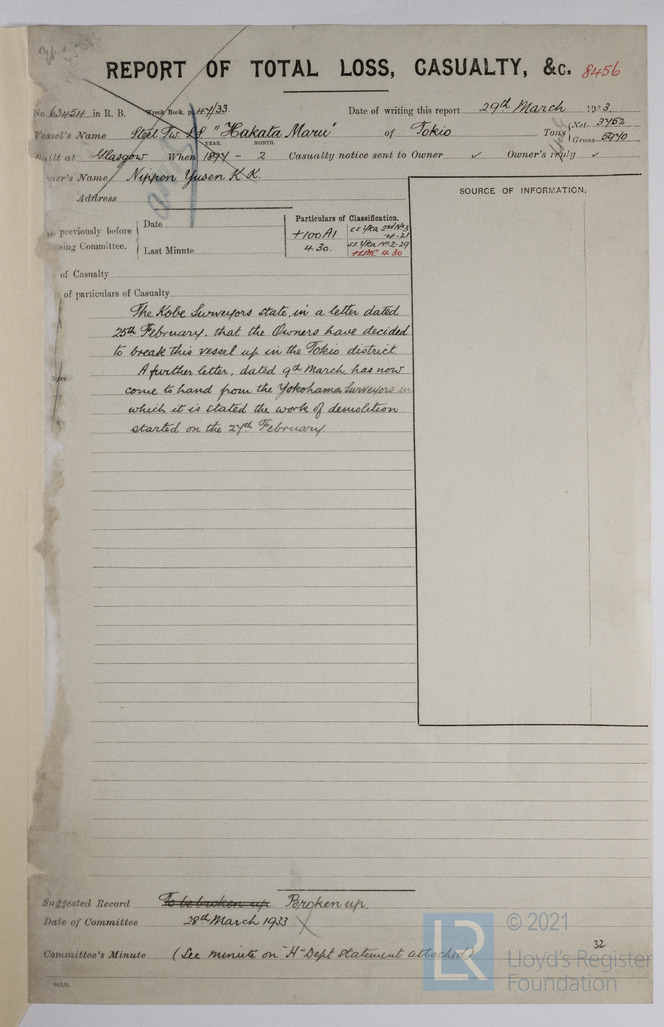 REPORT OF TOTAL LOSS, CASUALTY, &c. 8456
No. 63454 in R. B. Wreck Book, p. 47/33 Date of writing this report 29th March 193 3.
Vessel's Name Steel Tw SS "Hakata Maru" of Tokio Tons Net 3752
Gross 5940
Built at Glasgow When YEAR. 1897 - MONTH. 2 Casualty notice sent to Owner ✓ Owner's reply ✓
ner's Name Nippon Yusen K.K.
Address
SOURCE OF INFORMATION.
previously before
sing Committee.
Date
Last Minute
Particulars of Classification.
+100A1
4.30.
SS Yka 2nd No3
4.21
SS Yka No 2-29
+LMC 4.30
of Casualty
of particulars of Casualty
The Kobe Surveyors state, in a letter dated
25th February, that the Owners have decided
to break this vessel up in the Tokio district.
A further letter, dated 9th March, has now
come to hand from the Yokohama Surveyors in
which it is stated the work of demolition
started on the 27th February
Suggested Record To be broken up Broken up.
Date of Committee 28th March 1933
Committee's Minute (See minute on "H" Dept Statement attached)
32
LR
© 2021
Lloyd's Register
Foundation